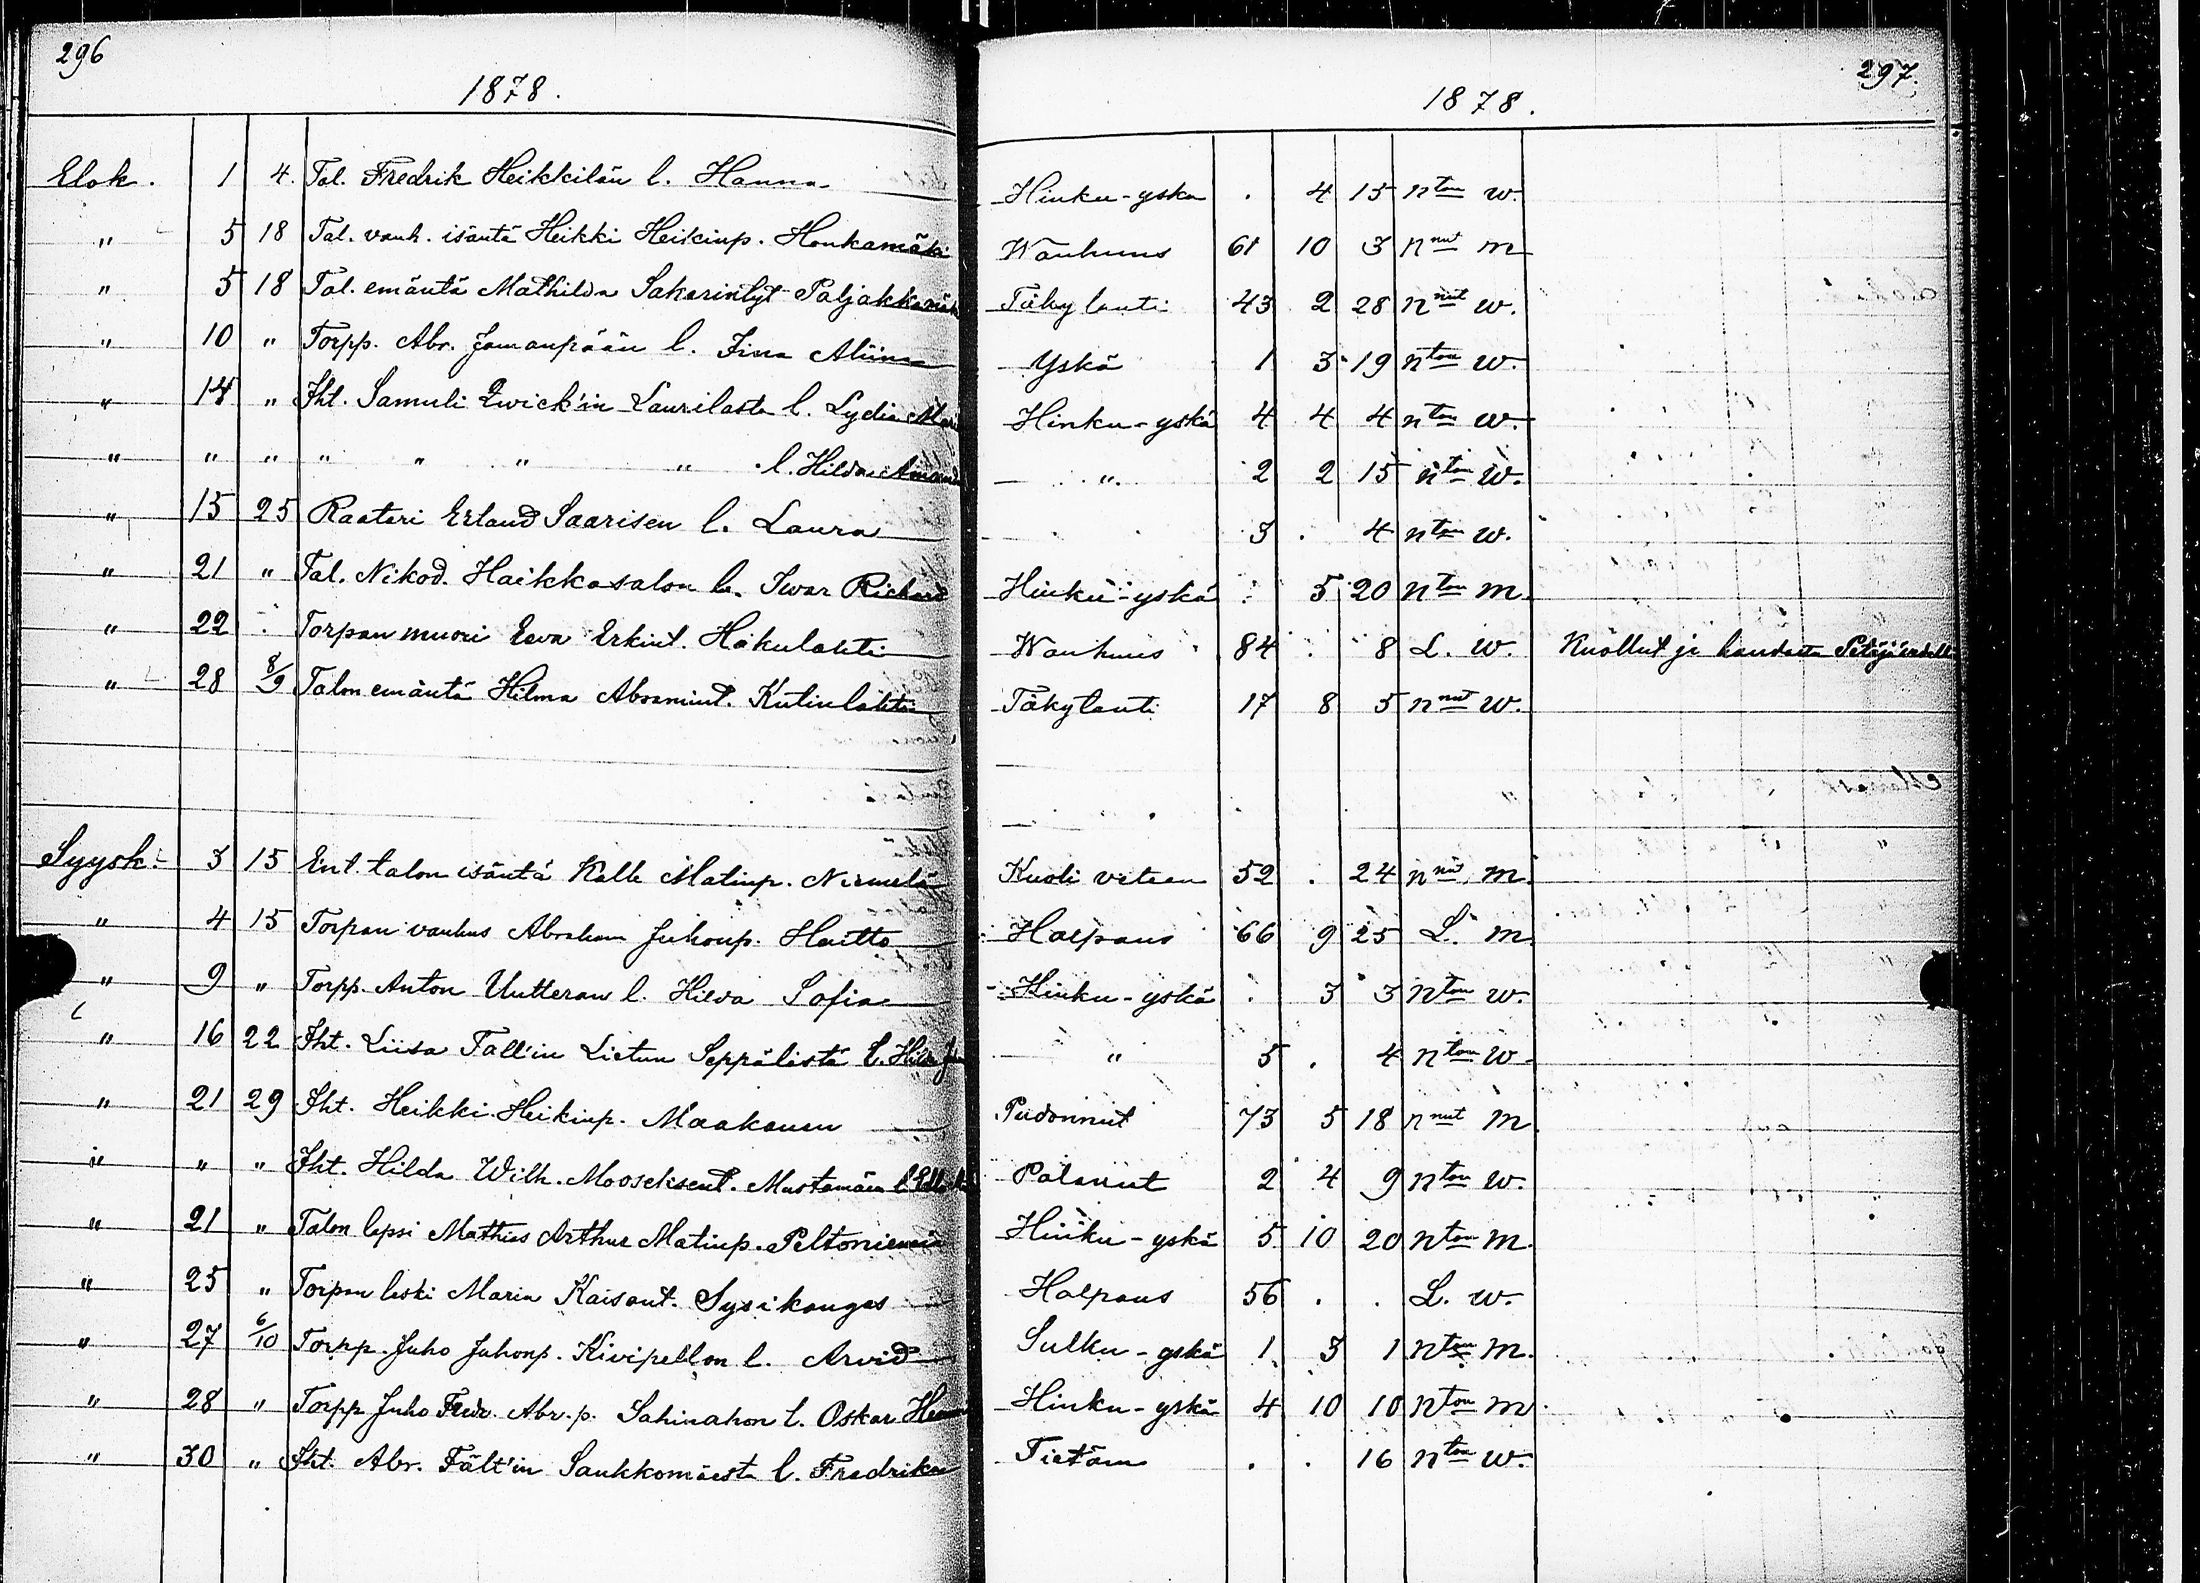 296
1878.
Elok. 1 4. Tal. Fredrik Heikkilän l. Hanna
" 5 18 Tal. vanh. isäntä Heikki Heikinp. Honkamäki
" 5 18 Tal. emäntä Mathilda Sakarintyt Paljakka
" 10 " Torpp. Abr. Jamanpään l. Fina Aliina
" 14 " Iht. Samuli Qwick'in Laurilasta l. Lydia
" " " " " " " l. Hilda Amanda
" 15 25 Raatari Erland Saarisen l. Laura
" 21 " Tal. Nikod. Haikkasalon l. Iwar Richard
" 22 " Torpan muori Eeva Erkint. Hakulahti
" 28 8/9 Talon emäntä Hilma Abramint. Kutinlahti
Syysk. 3 15 Ent. talon isäntä Kalle Matinp. Niemelä
" 4 15 Torpan vanhus Abraham Juhonp. Haitto
" 9 " Torpp. Anton Uutteran l. Hilda Sofia
" 16 22 Iht. Liisa Tall'in Lietun Seppälästä l. Hilda
" 21 29 Iht. Heikki Heikinp. Maakanen
" " " Iht. Hilda Wilh. Mooseksent. Mustamäen l.
" 21 " Talon lapsi Mathias Arthur Matinp. Peltoniemi
" 25 " Torpan leski Maria Kaisant. Sysikangas
" 27 6/10 Torpp. Juho Juhonp. Kivipellon l. Arvid
" 28 " Torpp Juho Fredr. Abr.p. Sahinahon l. Oskar
" 30 " Iht. Abr. Fält'in Saukkomäestä l. Fredrika
297.
1878.
Hinku-yskä . 4 15 nton w.
Wanhuus 61 10 3 nnut m
Täkytauti 43 2 28 nnut w.
Yskä 1 3 19 nton w.
Hinku-yskä 4 4 4 nton w.
" 2 2 15 nton w.
3 . 4 nton w.
Hinku-yskä . 5 20 nton m.
Wanhuus 84 . 8 L. w. Kuollut ja haudattu
Täkytauti 17 8 5 nnut w.
Kuoli veteen 52 . 24 nnut m.
Halpaus 66 9 25 L. m.
Hinku-yskä . 3 3 nton w.
" 5 . 4 nton w.
Pudonnut 73 5 18 nnut m.
Palanut 2 4 9 nton w.
Hinku-yskä 5 10 20 nton m.
Halpaus 56 . . L. w.
Sulku-yskä 1 3 1 nton m.
Hinku-yskä 4 10 10 nton m.
Tietäm . . 16 nton w.